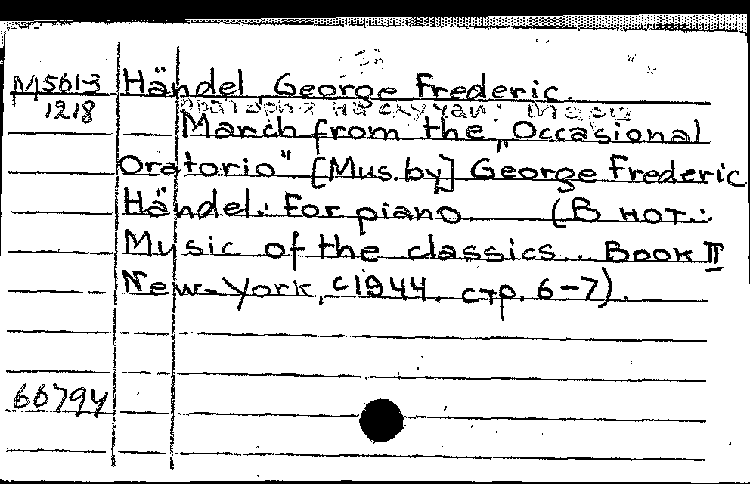 М5613 Händel, George Frederic.
1218
March from the „Occasional
Oratorio" [Mus.by] George Frederic
Händel. For piano (В нот.:
Music of the classics. Book II
New-York, c1944. стр. 6-7).
66794